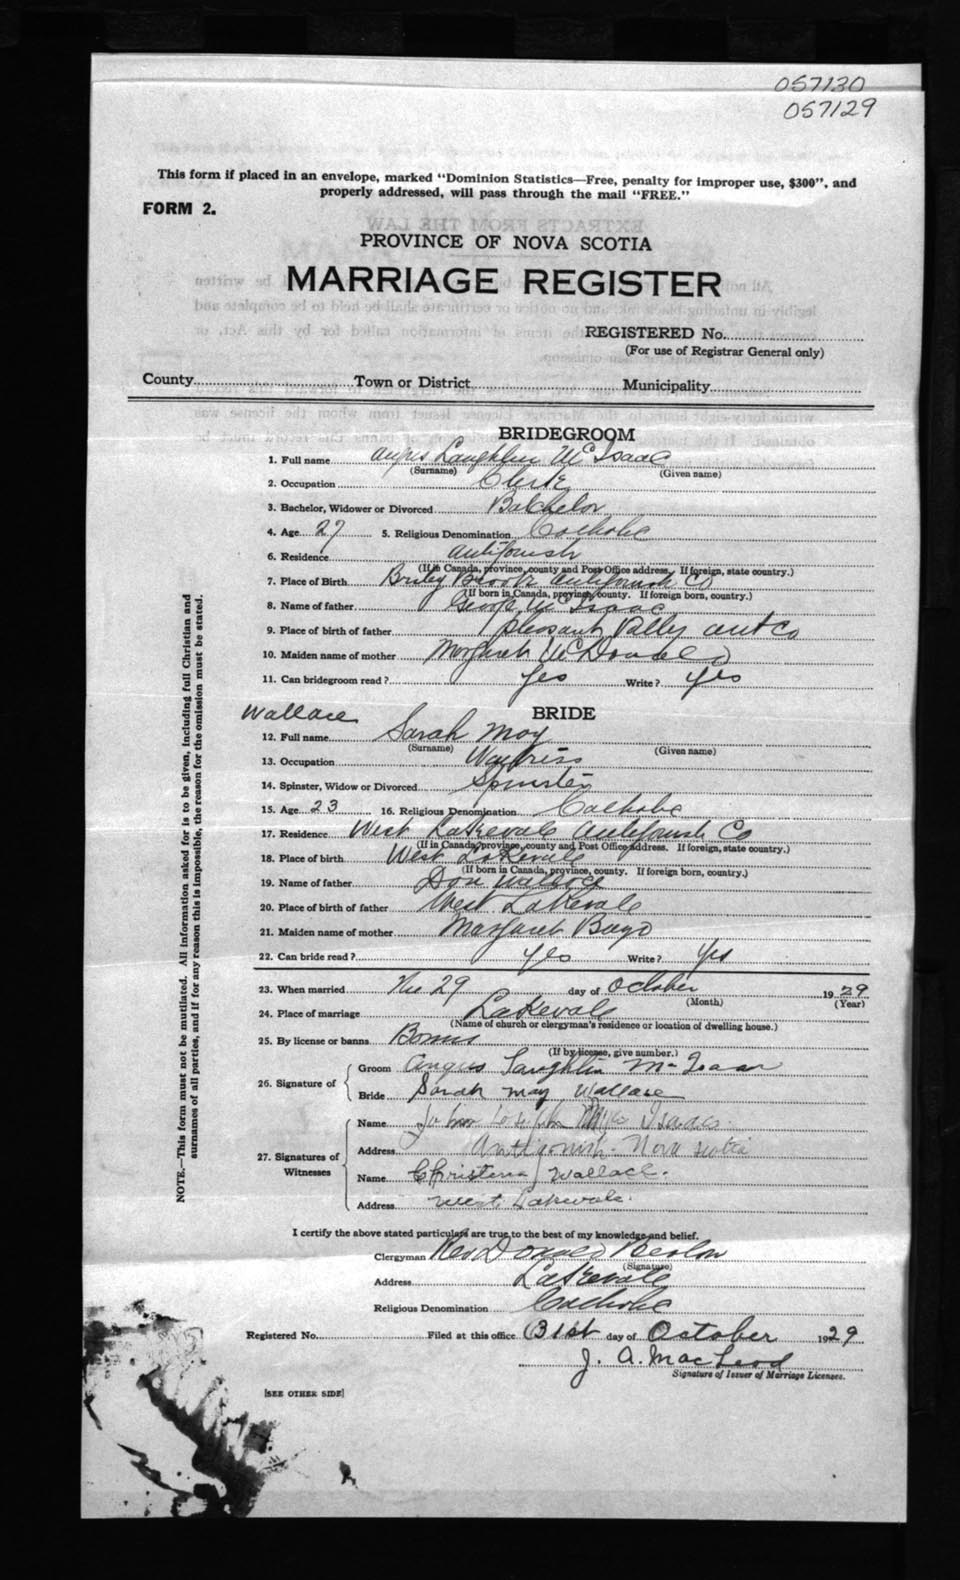 057130
057129
This form if placed in an envelope, marked "Dominion Statistics—Free, penalty for improper use, $300", and
properly addressed, will pass through the mail "FREE."
FORM 2.
PROVINCE OF NOVA SCOTIA
MARRIAGE REGISTER
REGISTERED No.
(For use of Registrar General only)
County Town or District Municipality
BRIDEGROOM
1. Full name Angus Laughlin McIsaac
(Surname) (Given name)
2. Occupation Clerk
3. Bachelor, Widower or Divorced Batchelor
4. Age 27 5. Religious Denomination Catholic
6. Residence Antigonish
(If in Canada, province, county and Post Office address. If foreign, state country.)
7. Place of Birth Briley Brook Antigonish Co
(If born in Canada, province, county. If foreign born, country.)
8. Name of father George McIsaac
9. Place of birth of father Pleasant Valley Ant Co
10. Maiden name of mother Margaret McDonald
11. Can bridegroom read? Yes Write? Yes
Wallace BRIDE
12. Full name Sarah May
(Surname) (Given name)
13. Occupation Waitriss
14. Spinster, Widow or Divorced Spinster
15. Age 23 16. Religious Denomination Catholic
17. Residence West Lakevale Antigonish Co
(If in Canada, province, county and Post Office address. If foreign, state country.)
18. Place of birth West Lakevale
(If born in Canada, province, county. If foreign born, country.)
19. Name of father Dan Wallace
20. Place of birth of father West Lakevale
21. Maiden name of mother Margaret Boyd
22. Can bride read? Yes Write? Yes
23. When married The 29 day of October 1929
(Month) (Year)
24. Place of marriage Lakevale
(Name of church or clergyman's residence or location of dwelling house.)
25. By license or banns Banns
(If by license, give number.)
26. Signature of
Groom Angus Laughlin McIsaac
Bride Sarah May Wallace
27. Signatures of Witnesses
Name John Joseph Isaac
Address Antigonish. Nova Scotia
Name Christena Wallace.
Address West Lakevale.
I certify the above stated particulars are true to the best of my knowledge and belief.
Clergyman Rev Donald
(Signature)
Address Lakevale
Religious Denomination Catholic
Registered No. Filed at this office 31st day of October 1929
J. A. MacLeod
Signature of Issuer of Marriage Licenses.
[SEE OTHER SIDE]
NOTE.—This form must not be mutilated. All information asked for is to be given, including full Christian and
surnames of all parties, and if for any reason this is impossible, the reason for the omission must be stated.